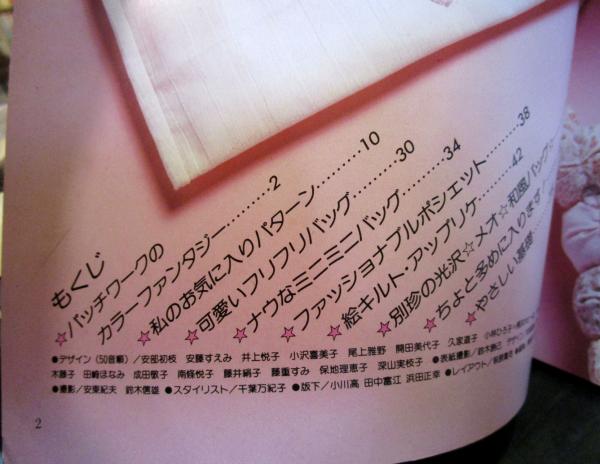 もくじ
☆パッチワークの
カラーファンタジー………2
☆私のお気に入りパターン………10
☆可愛いフリフリバッグ………30
☆ナウなミニミニバッグ………34
☆ファッショナブルポシェット………38
☆絵キルト・アップリケ………42
☆別珍の光沢☆メオ☆和風バッグ
☆ちょと多めに入ります!
☆やさしい基礎
●デザイン(50音順)/安部初枝 安藤すえみ 井上悦子 小沢喜美子 尾上雅野 開田美代子 久家道子 小林ひろ子
木藤子 田崎ほなみ 成田敬子 南條悦子 藤井絹子 藤重すみ 保地理恵子 深山実枝子 ●表紙撮影/鈴木
●撮影/安東紀夫 鈴木信雄 ●スタイリスト/千葉万紀子 ●版下/小川高 田中富江 浜田正幸 ●レイアウト/
2